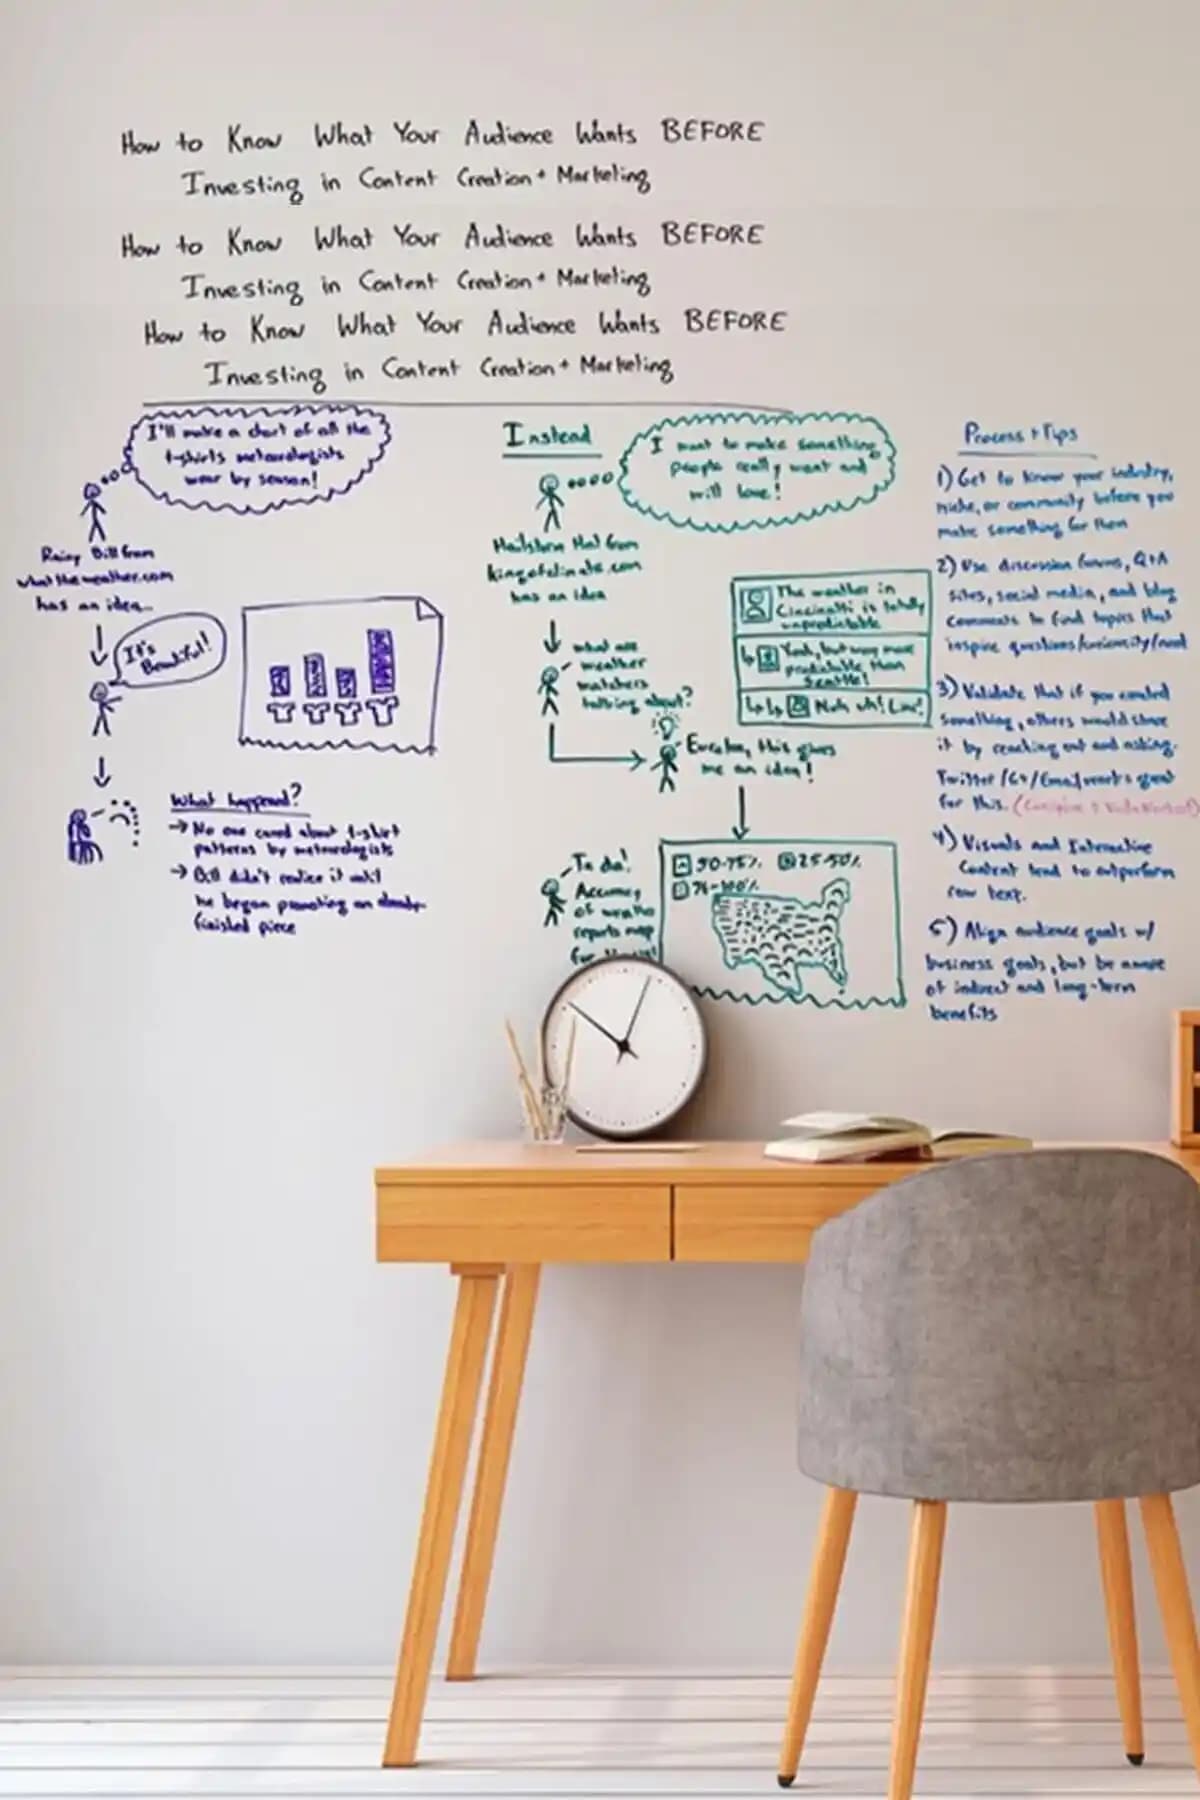 How to Know What Your Audience Wants BEFORE
Investing in Content Creation + Marketing
How to Know What Your Audience Wants BEFORE
Investing in Content Creation + Marketing
How to Know What Your Audience Wants BEFORE
Investing in Content Creation + Marketing
I'll make a chart of all the
t-shirts meteorologists
wear by season!
Rainy Bill from
whattheweather.com
has an idea...
It's
Beautiful!
What happened?
→ No one cared about t-shirt
patterns by meteorologists
→ Bill didn't realize it until
he began promoting an already-
finished piece
Instead
I want to make something
people really want and
will love!
Hailstorm Hal from
kingofclimate.com
has an idea
what are
weather
watchers
talking about?
The weather in
Cincinatti is totally
unpredictable
Yeah, but way more
predictable than
Seattle!
Nuh uh! Liar!
Eureka, this gives
me an idea!
Ta da!
Accuracy
of weather
reports map
for the
50-75%
25-50%
76-100%
Process + Tips
1) Get to know your industry,
niche, or community before you
make something for them
2) Use discussion forums, Q+A
sites, social media, and blog
comments to find topics that
inspire questions/curiosity/need
3) Validate that if you created
something, others would share
it by reaching out and asking.
Twitter/G+/Email work great
for this.
4) Visuals and Interactive
Content tend to outperform
raw text.
5) Align audience goals w/
business goals, but be aware
of indirect and long-term
benefits